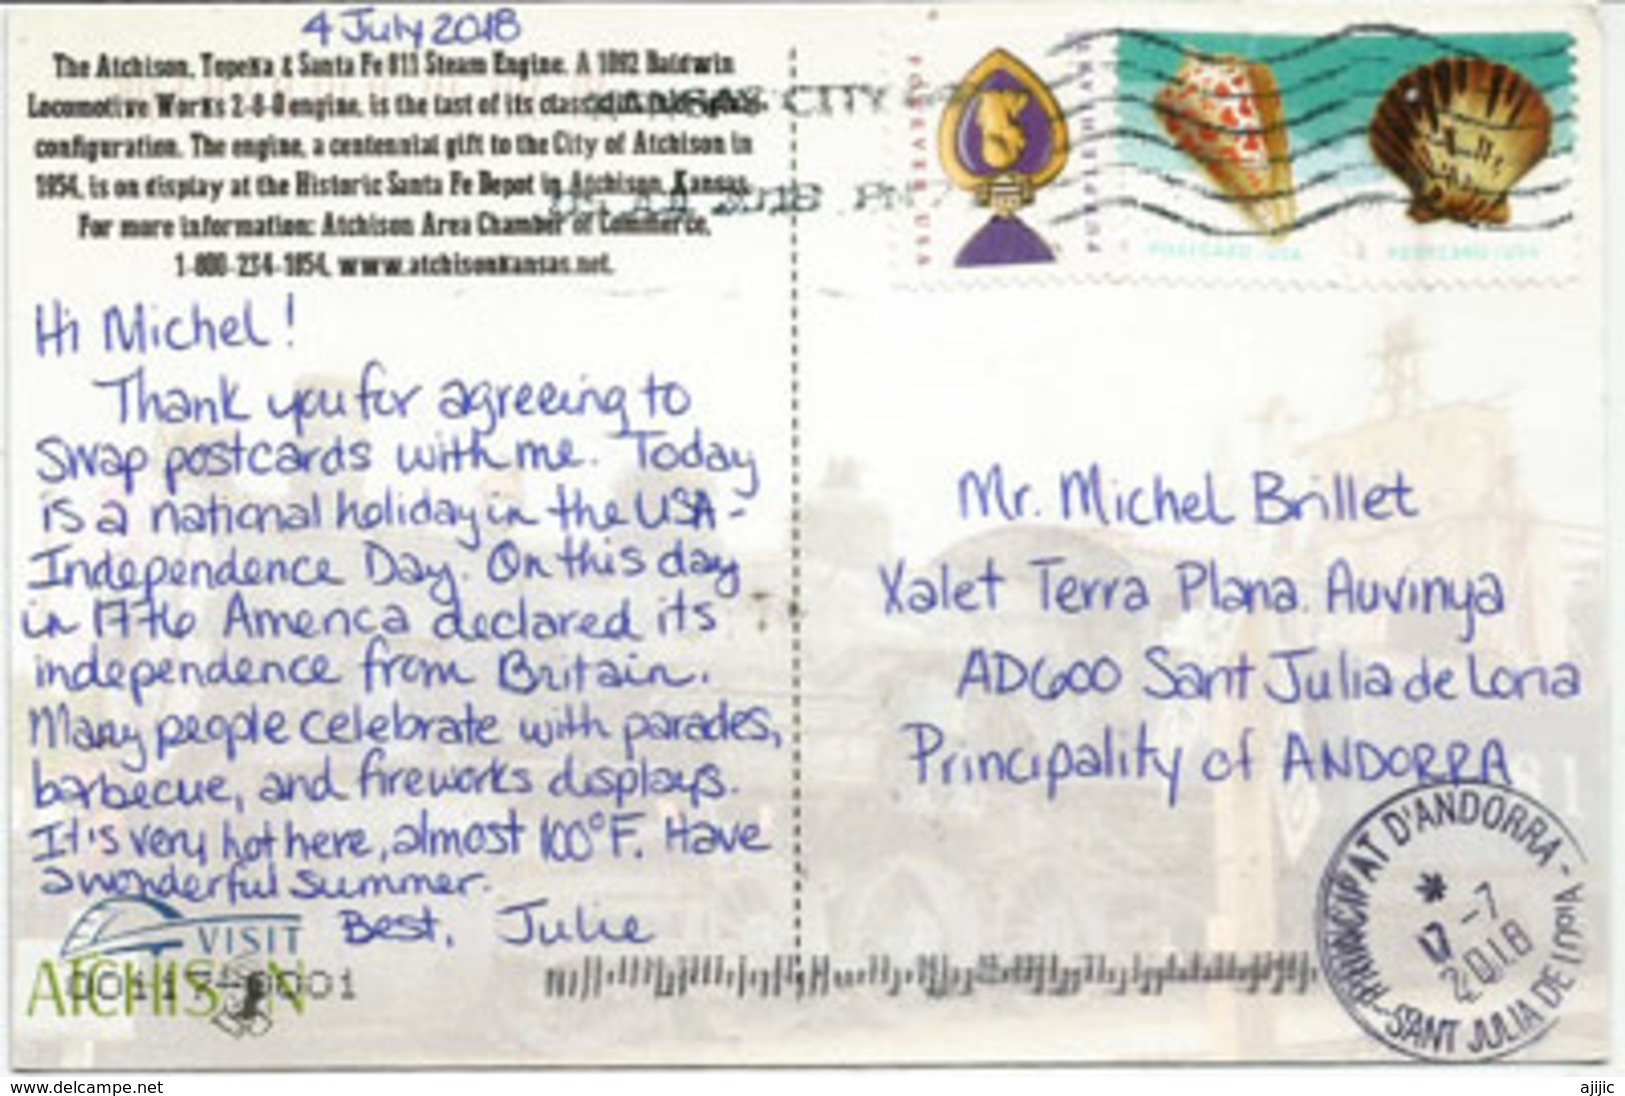 4 July 2018
The Atchison, Topeka & Santa Fe 811 Steam Engine. A 1892 Baldwin
Locomotive Works 2-8-0 engine, is the last of its class
configuration. The engine, a centennial gift to the City of Atchison in
1954, is on display at the Historic Santa Fe Depot in Atchison, Kansas.
For more information: Atchison Area Chamber of Commerce,
1-800-234-1854, www.atchisonkansas.net.
KANSAS CITY
2018 PM
FOREVER USA
PURPLE HEART
POSTCARD/USA
POSTCARD/USA
Hi Michel!
Thank you for agreeing to
swap postcards with me. Today
is a national holiday in the USA-
Independence Day. On this day
in 1776 America declared its
independence from Britain.
Many people celebrate with parades,
barbecue, and fireworks displays.
It's very hot here, almost 100°F. Have
a wonderful summer.
Best, Julie
Mr. Michel Brillet
Xalet Terra Plana. Auvinya
AD600 Sant Julia de Loria
Principality of ANDORRA
PRINCIPAT D'ANDORRA -
* 17 -7
2018
SANT JULIA DE LORIA
VISIT
ATCHISON
www.delcampe.net
ajijic